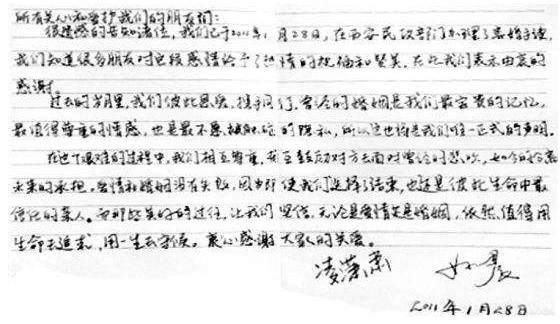 所有关心和爱护我们的朋友们：
很遗憾的告知诸位，我们已于2011年1月28日，在西安民政部门办理了离婚手续，
我们知道很多朋友对这段感情给予了热情的祝福和赞美，在此我们表示由衷的
感谢。
过去的岁月里，我们彼此恩爱，携手同行，曾经的婚姻是我们最宝贵的记忆，
最值得尊重的情感，也是最不愿被触碰的隐私，所以这也将是我们唯一正式的声明。
在这个艰难的过程中，我们相互尊重，互鼓励对方去面对曾经的悲欢，如今的
未来的承担。爱情和婚姻没有失败，因为即使我们选择了结束，也还是彼此生命中最
信任的亲人。而那些美好的过往，让我们坚信，无论是爱情还是婚姻，依然值得用
生命去追求，用一生去守候。衷心感谢大家的关爱。
凌潇肃 姚晨
2011年1月28日